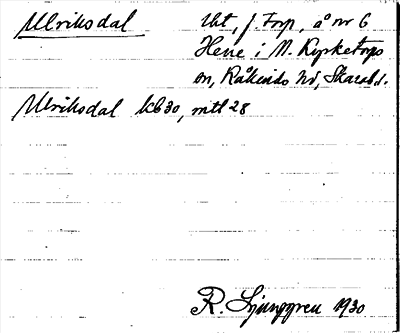 Ulriksdal lht, f. Torp, å nr 6
Hene i N. Kyrketorps
sn, Kåkinds hd, Skarab.l.
Ulriksdal kb30, mtl 28
R. Ljunggren 1930